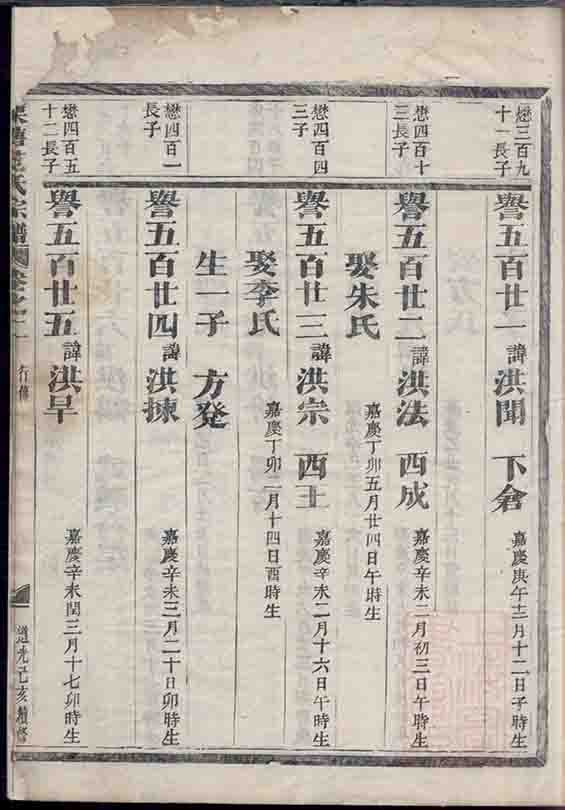 懋三百九
十一長子
譽五百廿一 諱 洪聞 下倉
嘉慶庚午十二月十二日子時生
懋四百十
三長子
譽五百廿二 諱 洪法 西成
嘉慶辛未二月初三日午時生
娶朱氏
嘉慶丁卯五月廿四日午時生
懋四百四
三子
譽五百廿三 諱 洪宗 西土
嘉慶辛未二月十六日午時生
娶李氏
嘉慶丁卯二月十四日酉時生
生一子 方發
懋四百一
長子
譽五百廿四 諱 洪揀
嘉慶辛未三月二十日卯時生
懋四百五
十二長子
譽五百廿五 諱 洪早
嘉慶辛未閏三月十七卯時生
氏宗譜 卷之一
行傳
道光己亥續修